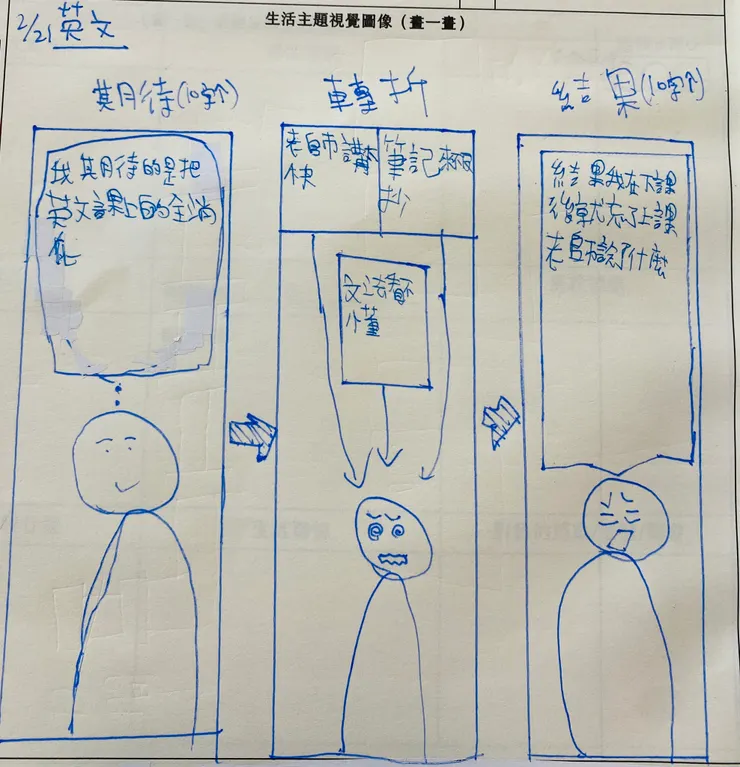 生活主題視覺圖像（畫一畫）
2/21英文
期待(10字↑)
我期待的是把
英文課上的全消
化
轉折
老師講太
快
筆記來不及
抄
文法看不
懂
結果(10字↑)
結果我在下課
後就忘了上課
老師說了什麼